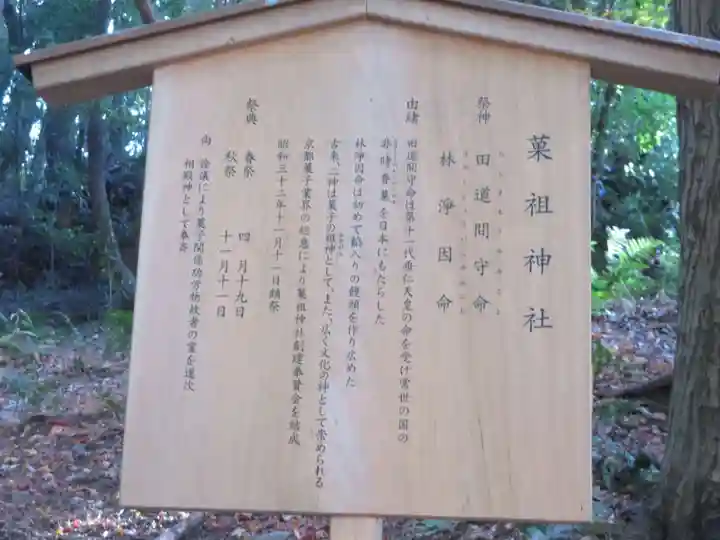 菓祖神社
祭神 田道間守命
林淨因命
由緒 田道間守命は第十一代垂仁天皇の命を受け常世の国の
非時香菓を日本にもたらした
林淨因命は初めて餡入りの饅頭を作り広めた
古来、二神は菓子の祖神として、また、広く文化の神として崇められる
京都菓子業界の総意により菓祖神社創建奉賛会を結成
昭和三十二年十一月十一日鎮祭
祭典 春祭 四月十九日
秋祭 十一月十一日
尚 詮議により菓子関係功労物故者の霊を逐次
相殿神として奉斎